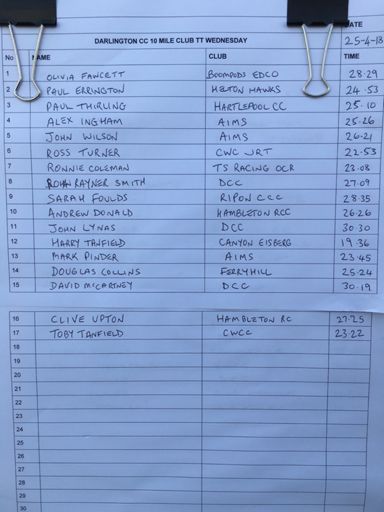 DATE
DARLINGTON CC 10 MILE CLUB TT WEDNESDAY 25-4-18
No NAME CLUB TIME
1 OLIVIA FAWCETT BOOMPODS EDCO 28.29
2 PAUL ERRINGTON HETTON HAWKS 24.53
3 PAUL THIRLING HARTLEPOOL CC 25.10
4 ALEX INGHAM AIMS 25.26
5 JOHN WILSON AIMS 26.21
6 ROSS TURNER CWC JRT 22.53
7 RONNIE COLEMAN TS RACING OCR 23.08
8 RAYNER SMITH DCC 27.09
9 SARAH FOULDS RIPON CCC 28.35
10 ANDREW DONALD HAMBLETON RCC 26.26
11 JOHN LYNAS DCC 30.30
12 HARRY TANFIELD CANYON EISBERG 19.36
13 MARK PINDER AIMS 23.45
14 DOUGLAS COLLINS FERRYHILL 25.24
15 DAVID MCCARTNEY DCC 30.19
16 CLIVE UPTON HAMBLETON RC 27.25
17 TOBY TANFIELD CWCC 23.22
18
19
20
21
22
23
24
25
26
27
28
29
30